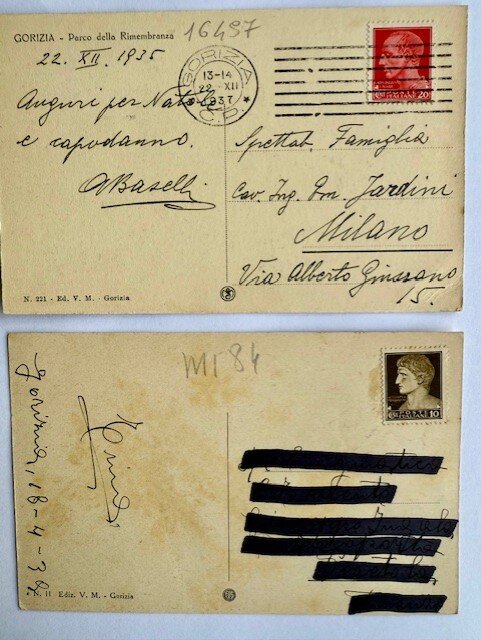 GORIZIA - Parco della Rimembranza
16497
22. XII. 1935
GORIZIA
13-14
22 XII
1937
C.P.
POSTE ITALIANE 20
Auguri per Natale
e capodanno.
ABaselli
Spettab. Famiglia
Cav. Ing. Om. Jardini
Milano
Via Alberto
15.
N. 221 - Ed. V. M. - Gorizia
M184
POSTE
ITALIANE 10
Gorizia, 18-4-3
N. 11 Ediz. V. M. - Gorizia